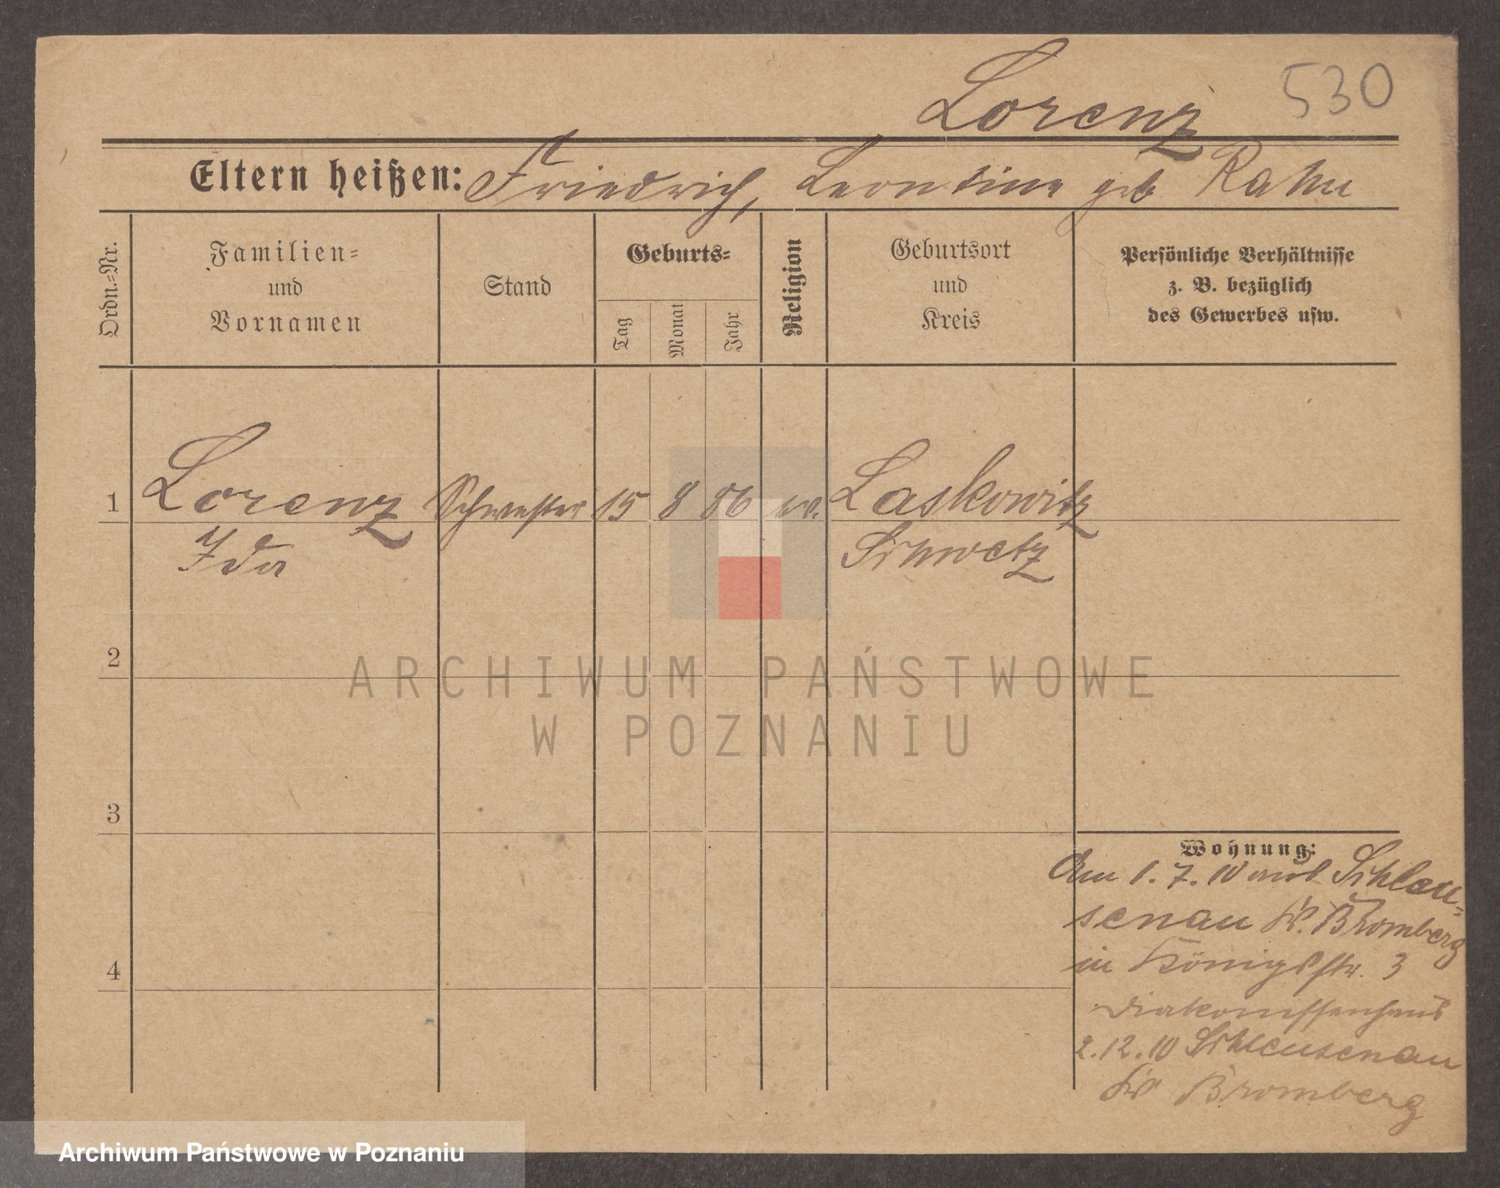 530
Lorenz
Eltern heißen: Friedrich, Leontine geb Rahn
Ordn.-Nr.
Familien-
und
Vornamen
Stand
Geburts-
Tag
Monat
Jahr
Religion
Geburtsort
und
Kreis
Persönliche Verhältnisse
z. B. bezüglich
des Gewerbes usw.
1 Lorenz Schwester 15 8 86 ev. Laskowitz
Ida Schwetz
2
ARCHIWUM PAŃSTWOWE
W POZNANIU
3
Wohnung:
Am 1. 7. 10 aus Schleu-
senau Kr. Bromberg
4
in Königsstr. 3
Diakonissenhaus
2. 12. 10 Schleusenau
Kr Bromberg
Archiwum Państwowe w Poznaniu